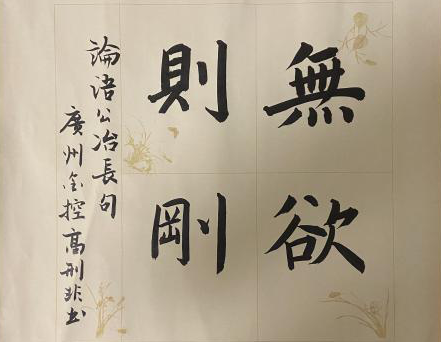 無欲
則剛
論語公冶長句
廣州金控高刑非书